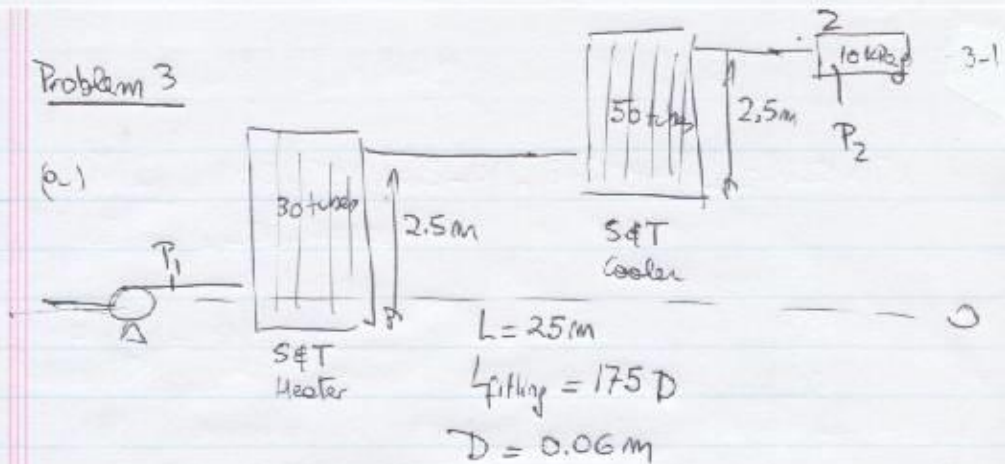 Problem 3
3-1
(a)
P1
30 tubes
2.5m
S&T
Heater
50 tubes
2,5m
S&T
Cooler
2
10 kPag
P2
0
L = 25m
Lfitting = 175 D
D = 0.06 m